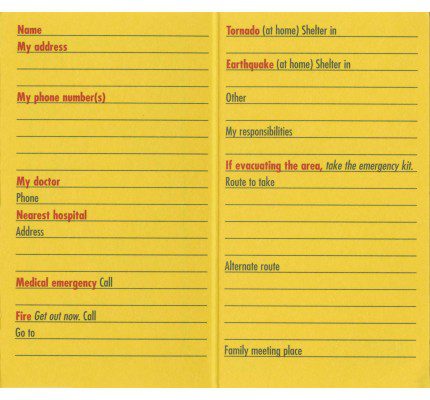 Name
My address
My phone number(s)
My doctor
Phone
Nearest hospital
Address
Medical emergency Call
Fire Get out now. Call
Go to
Tornado (at home) Shelter in
Earthquake (at home) Shelter in
Other
My responsibilities
If evacuating the area, take the emergency kit.
Route to take
Alternate route
Family meeting place